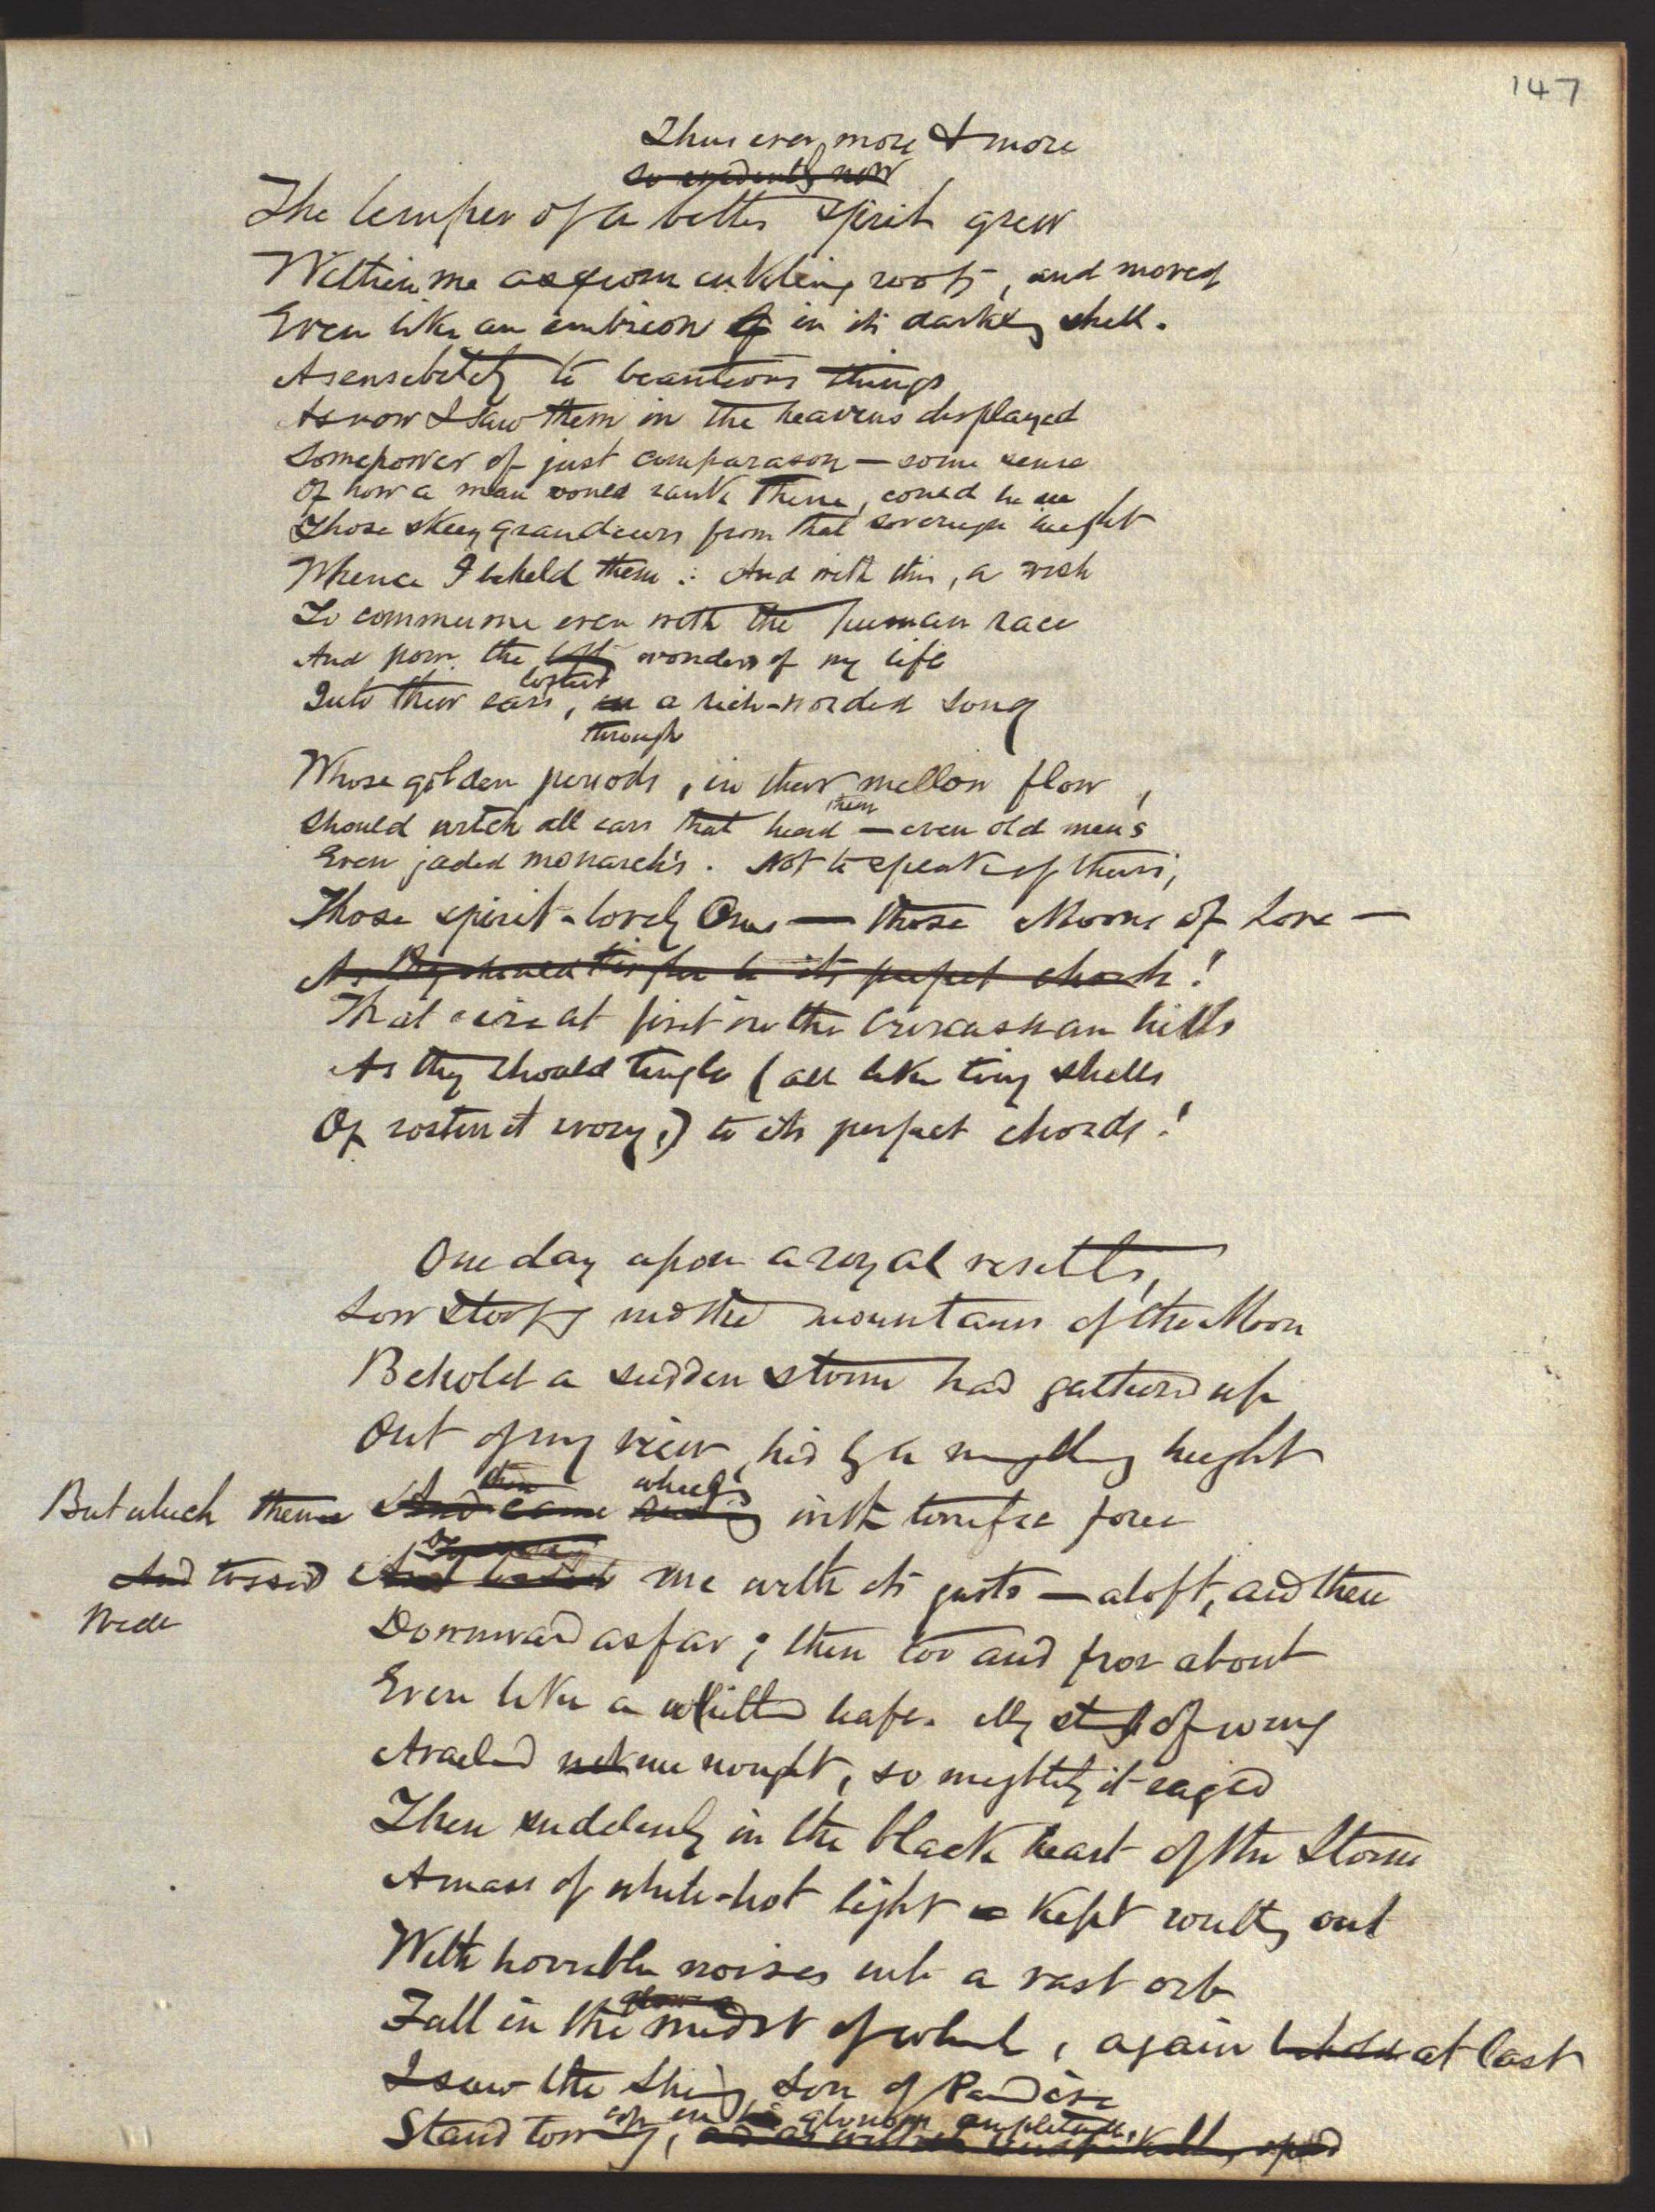 147
Thus ever more & more
so evidently now
The temper of a better spirit grew
Within me as from enkindling roots, and moved
Even like an embrion in its darkling shell.
A sensibility to beauteous things
As now I saw them in the heavens displayed
Some power of just comparason — some sense
Of how a man would rank them, could he see
Those skeey grandeurs from that sovereign height
Whence I beheld them: And with this, a wish
To commune even with the human race
And pour the lofty wonders of my life
loftiest
Into their ears, in a rich-worded song
through
Whose golden periods, in their mellow flow,
them
Should witch all ears that heard — even old men's
Even jaded monarch's. Not to speak of theirs,
Those spirit-lovely Ones — those Moons of Love —
As they should tingle to its perfect chords!
That at first in the Circasshan hills
As they should tingle (all like tiny shells
Of rostinct ivory,) to its perfect chords!
One day upon a royal
Low stooping mid the mountains of the Moon
Behold a sudden storm had gathered up
Out of my view, hid by a height
then wheeling
But which thence And came with terrific force
And tossed And me with its gusts — aloft, and then
Wide
Downward as far; then too and fro about
Even like a leafe. My strength of wing
Availed me nought, so mightily it raged
Then suddenly in the black heart of the Storm
A mass of white-hot light kept out
With horrible noises into a vast orb
Full in the midst of which, again at last
I saw the Shining Son of Paradise
up in his glorious amplitude,
Stand towering,